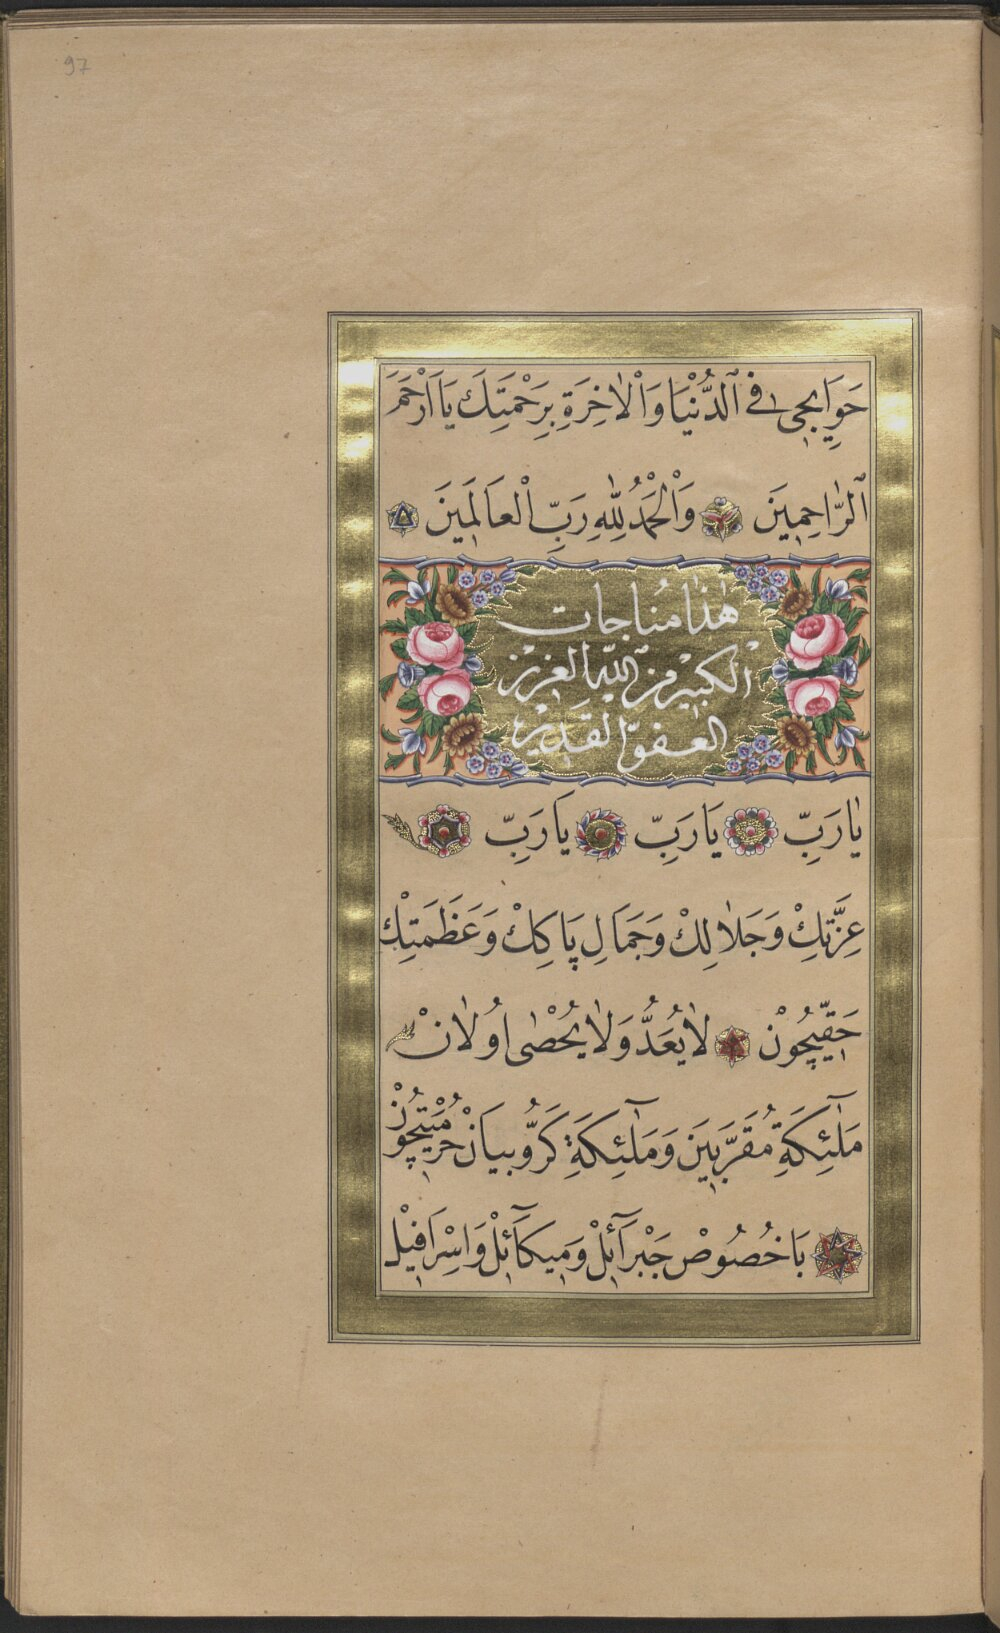 97
حَوَايِجِى فِى ٱلدُّنْيَا وَاْلاٰخِرَةِ بِرَحْمَتِكَ يَا اَرْحَمَ
ٱلرَّاحِمِينَ وَاْلْحَمْدُ لِلّٰهِ رَبِّ اْلْعَالَمِينَ
هٰذَا مُنَاجَات
اْلكَبِيرْ مِنَ ٱللّٰهِ الْعَزِيزْ
الْعَفُوِّ الْقَدِيرْ
يٰا رَبِّ يَا رَبِّ يَا رَبِّ
عِزَّتِكْ وَجَلَالِكْ وَجَمَالِ پَاكِكْ وَعَظَمَتِكْ
حَقِّيچُونْ لاٰ يُعَدُّ وَلاٰ يُحْصٰى اُولاٰنْ
مَلٰٓئِكَةِ مُقَرَّبِينَ وَمَلٰٓئِكَةِ كَرُّوبِيَانْ حُرْمَتِيچُونْ
بَاخُصُوصْ جَبْرَآئِلْ وَمِيكَآئِلْ وَاِسْرَافِيلْ